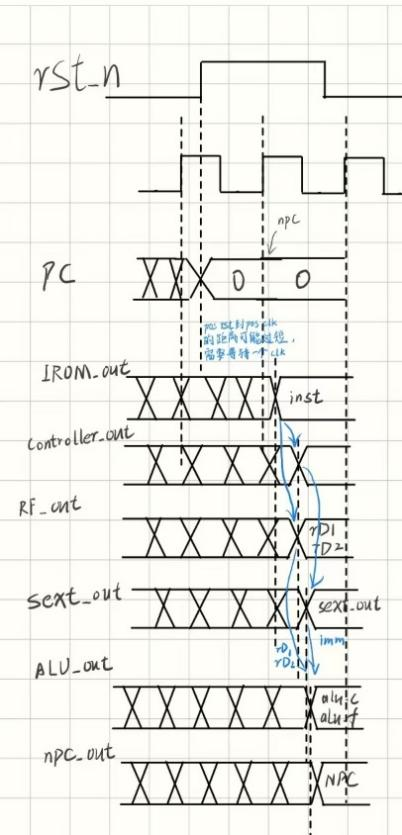 rst_n
npc
PC
0
0
pos rst到pos clk
的距离可能过短,
需要等待一个clk
IROM_out
inst
Controller_out
RF_out
rD1
rD2
Sext_out
sext_out
imm
rD1
rD2
ALU_out
alu.c
alu.f
npc_out
NPC